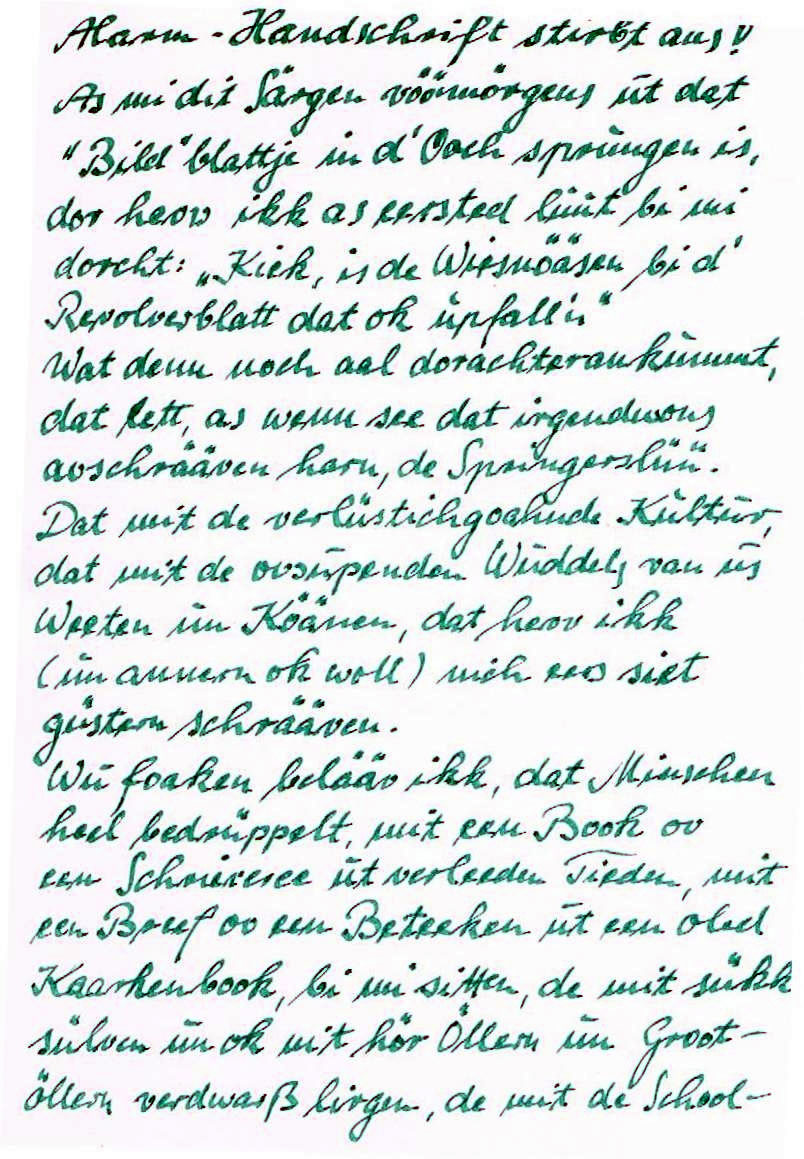 Alarm - Handschrift stirbt aus!!
As mi dit Särgen vöömörgens ût dat
"Bild" blattje in d' Ooch sprûngen is,
dor heov ikk as eersted lüüt bi mi
dorcht: „Kiek, is de Wiesnöäsen bi d'
Revolverblatt dat ok ûpfall'n"
Wat denn noch aal dorachterankûmmt,
dat lett, as wenn see dat irgendwons
avschrääven harn, de Springerslüü.
Dat mit de verlüstichgoahnde Kûltûr,
dat mit de ovsûpenden Wûddels van ûs
Weeten ûn Köänen, dat heov ikk
(ûn annern ok woll) nich eers siet
güstern schrääven.
Wû foaken belääv ikk, dat Minschen
heel bedrüppelt, mit een Book ov
een Schrieveree ût verleeden Tieden, mit
een Breef ov een Beteeken ût een oled
Kaarkenbook, bi mi sitten, de mit sükk
sülven ûn ok mit hör Öllern ûn Groot-
öllern verdwarß liggen, de mit de School-